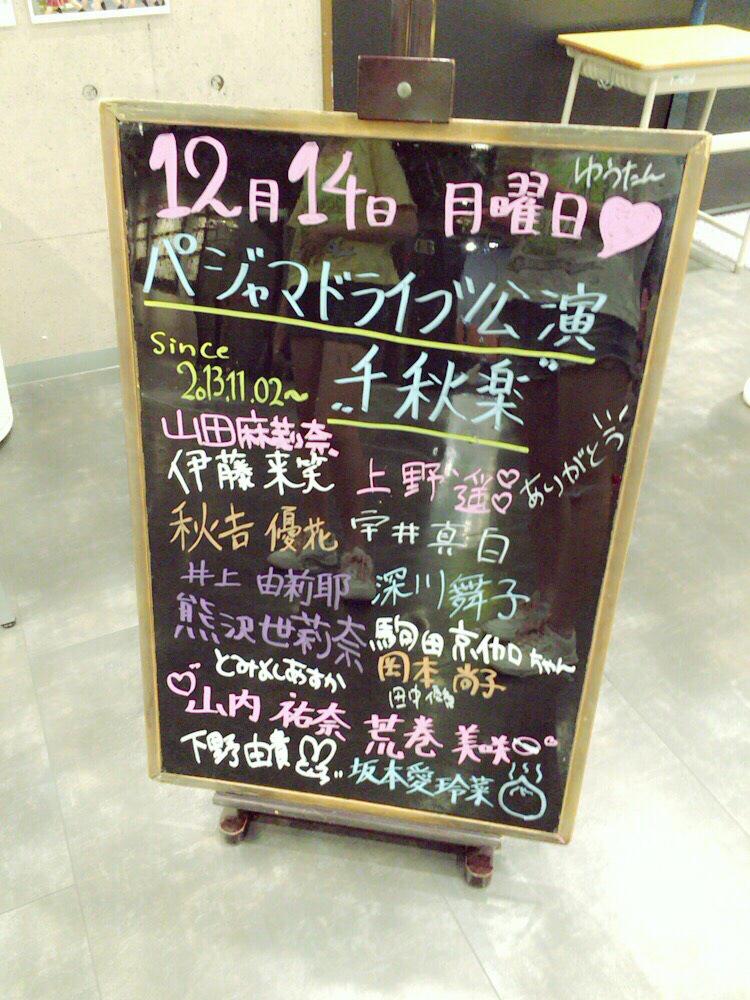 12月14日 月曜日
ゆうたん
パジャマドライブ公演
"千秋楽"
since
2013.11.02～
山田麻莉奈
伊藤来笑
上野遥
ありがとう
秋吉優花
宇井真白
井上由莉耶
深川舞子
熊沢世莉奈
駒田京伽ちゃん
とみよしあすか
岡本尚子
田中優香
山内祐奈
荒巻美咲
下野由貴
坂本愛玲菜